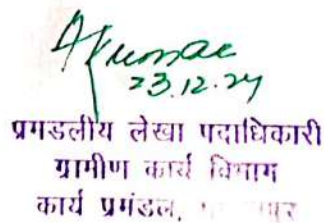 AKumar
23.12.24
प्रमडलीय लेखा पदाधिकारी
ग्रामीण कार्य विभाग
कार्य प्रमंडल,